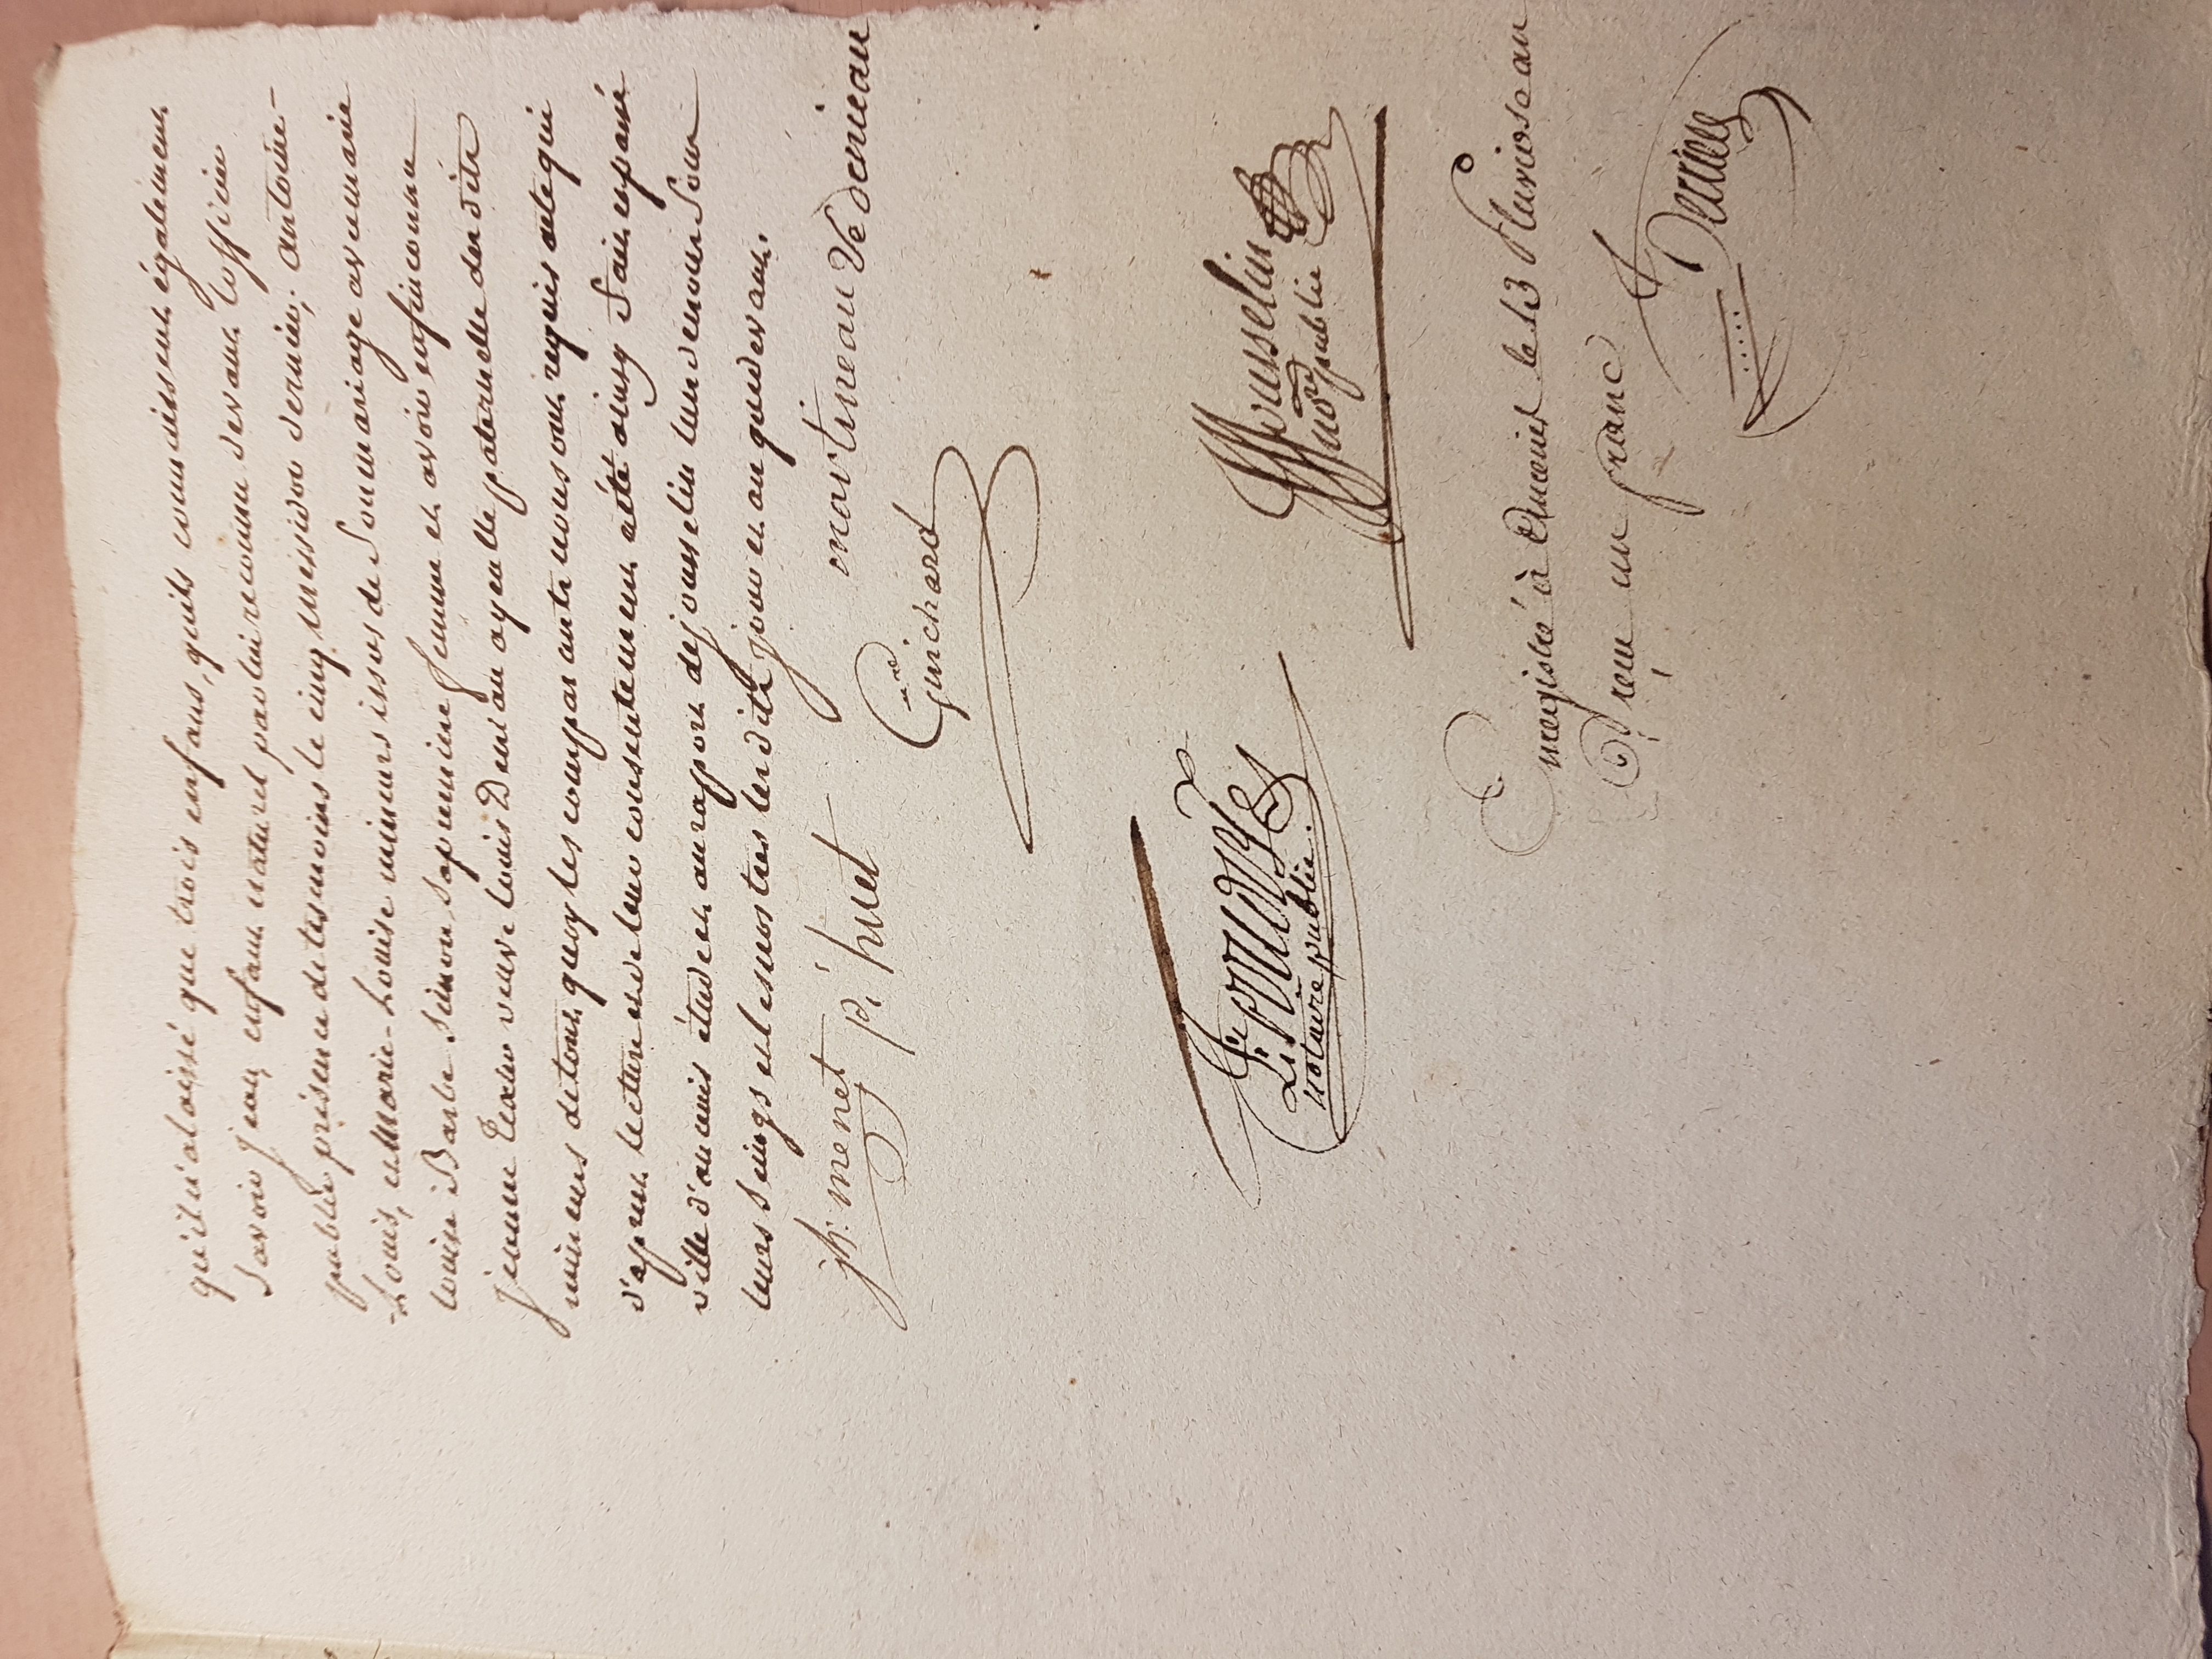 qu'il n'a laissé que trois enfans, quils connaissent également
Savoir jean enfant naturel par lui reconnu devant lofficier
public présence de tesmoins le cinq messidor dernier, antoine-
-Louis, et Marie-Louise mineurs issus de Son mariage avec marie
louise Barbe Simon, Sa premiere femme et avoir enfin connu
jeanne veuve louis Deniau ayeulle paternelle des dits
mineurs de tout quoy les comparants nous ont requis acte qui
d'apres lecture et de leur consentement a été ainsy fait et passé
ville d'ancenis étude et au rapport de jousselin lun de nous Sous
leurs Seings et les nostres les dits jour et an que devant.
jh: menet p. huet martineau Ve denieau
Guichard
notaire public.
Jousselin
no.re public
Enregistré à Ancenis le 13 Pluviose an
reçu un franc